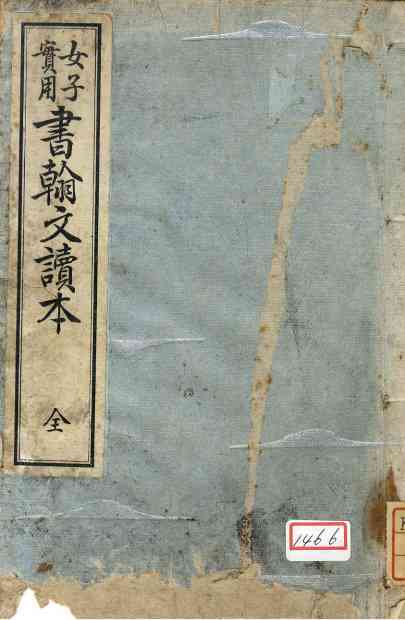 女子
實用
書翰文讀本
全
1466